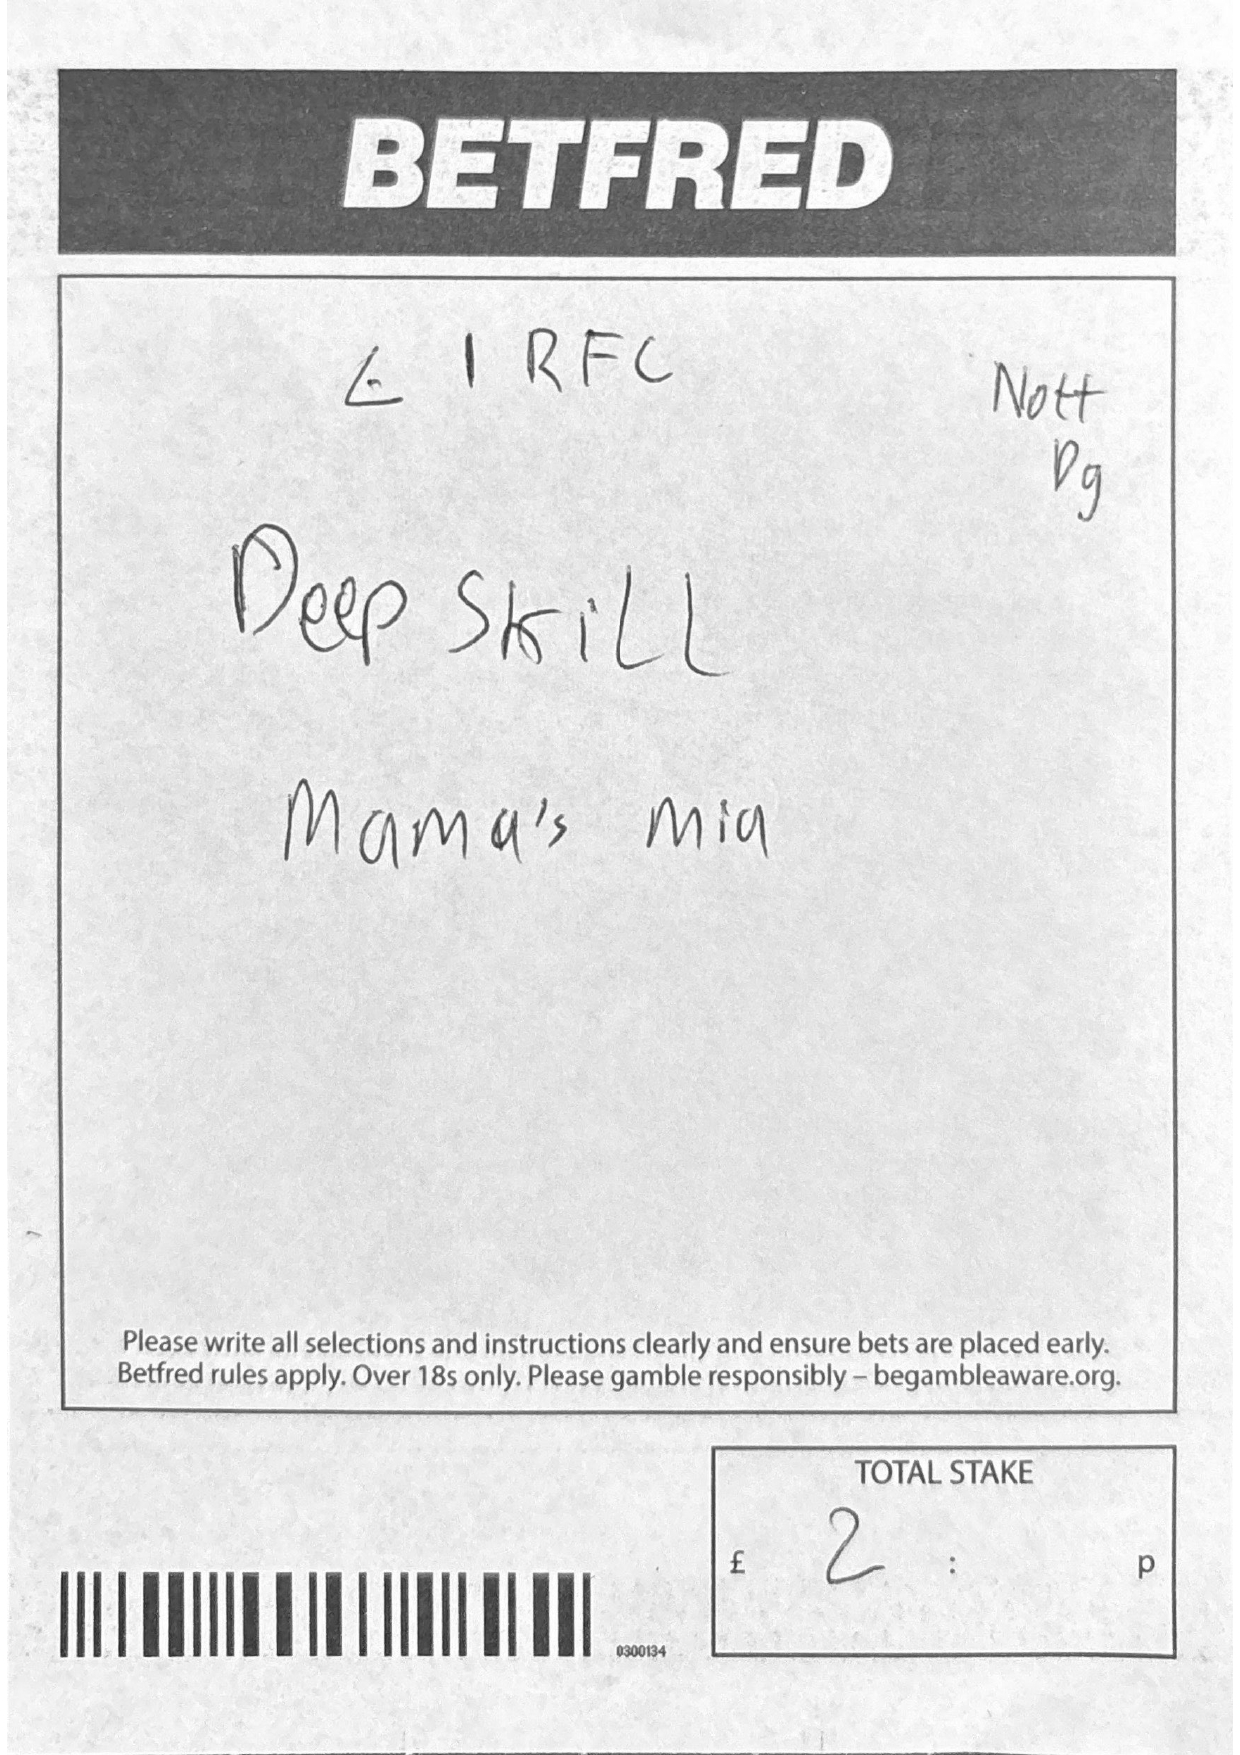 BETFRED
£ 1 RFC
Nott
Dg
Deep Skill
Mama's mia
Please write all selections and instructions clearly and ensure bets are placed early.
Betfred rules apply. Over 18s only. Please gamble responsibly – begambleaware.org.
TOTAL STAKE
£ 2 : p
0300134